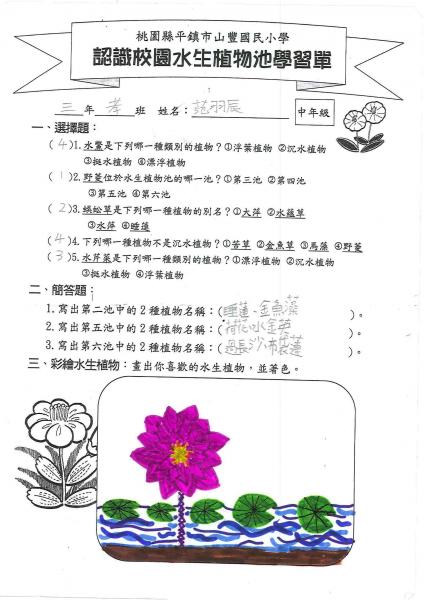 桃園縣平鎮市山豐國民小學
認識校園水生植物池學習單
三年孝班 姓名：范羽辰 中年級
一、選擇題：
(4)1.水鱉是下列哪一種類別的植物？①浮葉植物 ②沉水植物
③挺水植物 ④漂浮植物
(1)2.野菱位於水生植物池的哪一池？①第三池 ②第四池
③第五池 ④第六池
(2)3.蜈蚣草是下列哪一種植物的別名？①大萍 ②水蘊草
③水萍 ④睡蓮
(4)4.下列哪一種植物不是沉水植物？①苦草 ②金魚草 ③馬藻 ④野菱
(3)5.水芹菜是下列哪一種類別的植物？①漂浮植物 ②沉水植物
③挺水植物 ④浮葉植物
二、簡答題：
1.寫出第二池中的2種植物名稱：(睡蓮、金魚藻)。
2.寫出第五池中的2種植物名稱：(荷花、水金英)。
3.寫出第六池中的2種植物名稱：(過長沙、布袋蓮)。
三、彩繪水生植物：畫出你喜歡的水生植物，並著色。